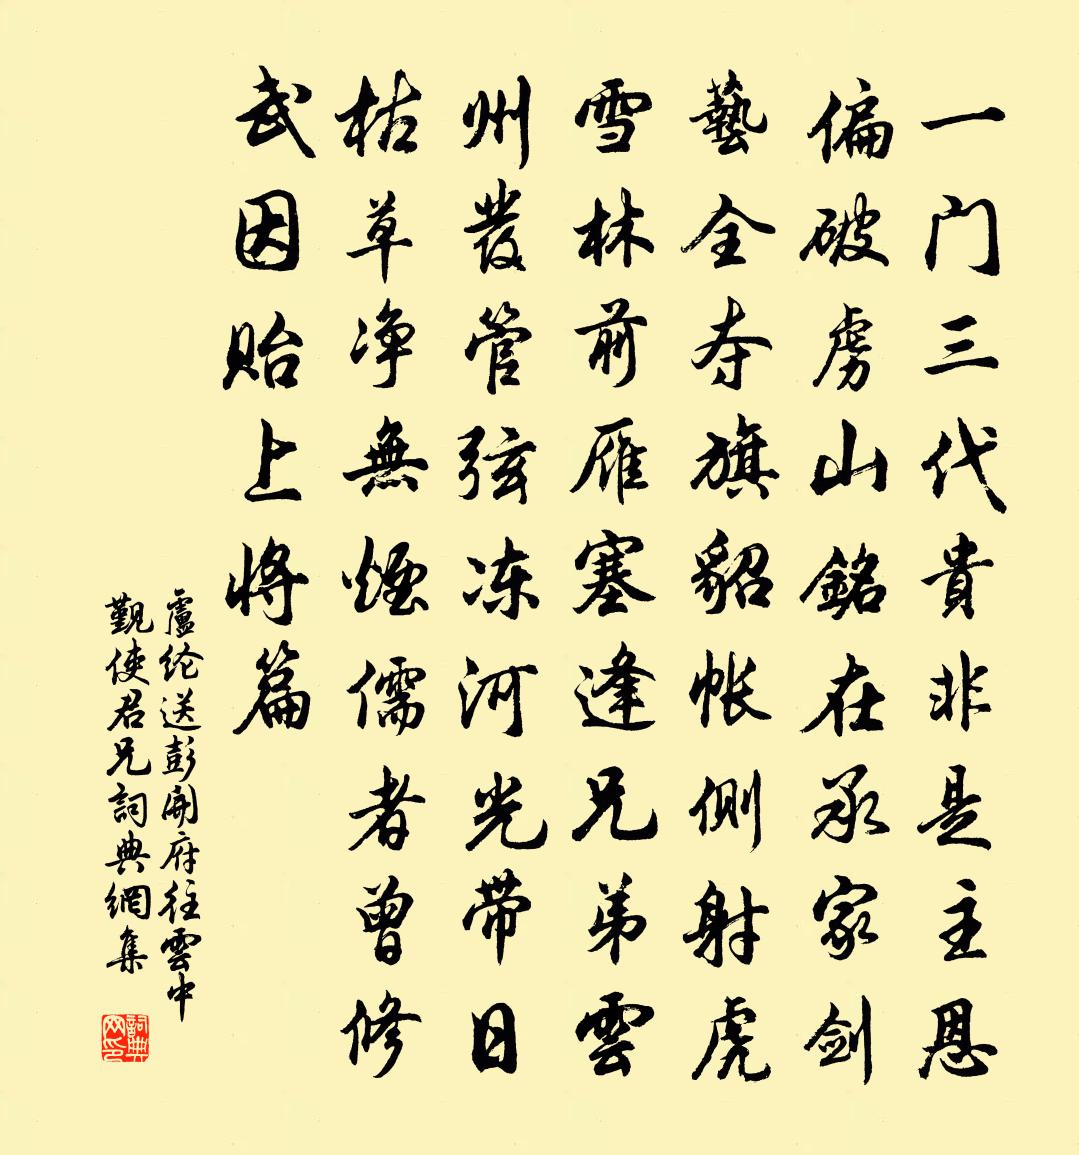 一门三代貴非是主恩
偏破虜山銘在承家剑
藝全夺旗貂帐侧射虎
雪林前雁塞逢兄弟雲
州發管弦冻河光带日
枯草净無煙儒者曾修
武因贻上将篇
盧纶送彭開府往雲中
覲使君兄詞典網集
詞典网印